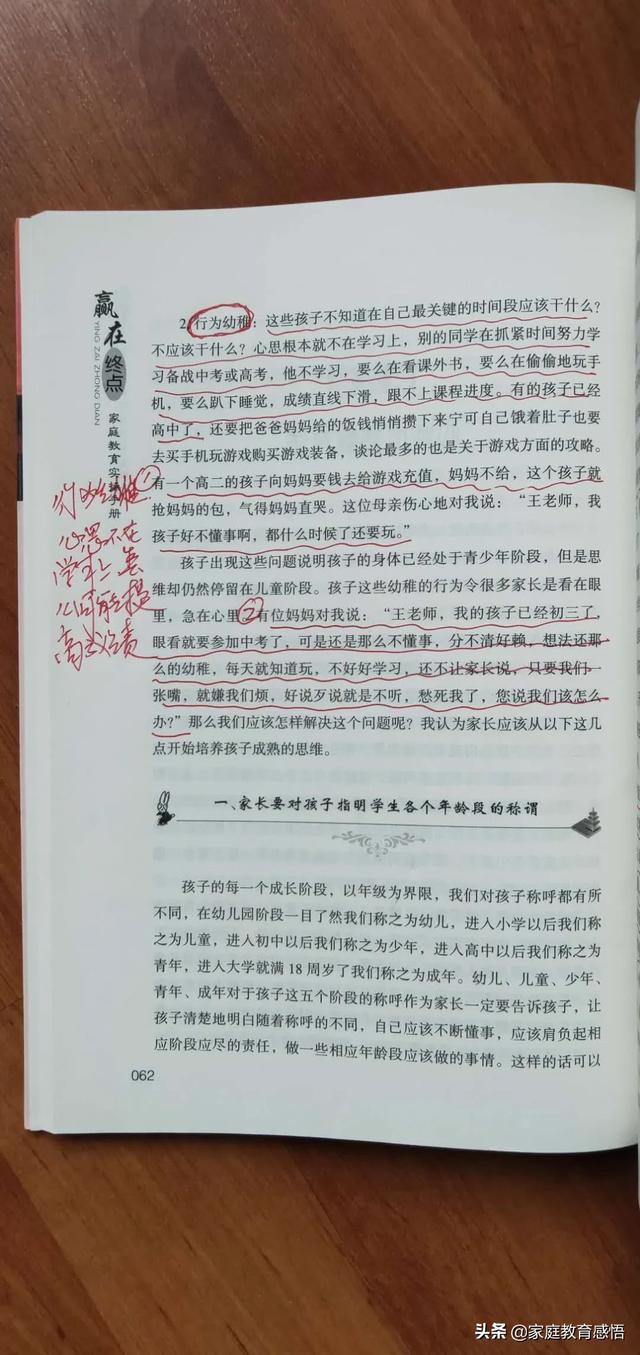 赢在终点
YING ZAI ZHONG DIAN
家庭教育实操手册
2.行为幼稚：这些孩子不知道在自己最关键的时间段应该干什么？
不应该干什么？心思根本就不在学习上，别的同学在抓紧时间努力学
习备战中考或高考，他不学习，要么在看课外书，要么在偷偷地玩手
机，要么趴下睡觉，成绩直线下滑，跟不上课程进度。有的孩子已经
高中了，还要把爸爸妈妈给的饭钱悄悄攒下来宁可自己饿着肚子也要
去买手机玩游戏购买游戏装备，谈论最多的也是关于游戏方面的攻略。
有一个高二的孩子向妈妈要钱去给游戏充值，妈妈不给，这个孩子就
抢妈妈的包，气得妈妈直哭。这位母亲伤心地对我说：“王老师，我
孩子好不懂事啊，都什么时候了还要玩。”
孩子出现这些问题说明孩子的身体已经处于青少年阶段，但是思
维却仍然停留在儿童阶段。孩子这些幼稚的行为令很多家长是看在眼
里，急在心里②有位妈妈对我说：“王老师，我的孩子已经初三了，
眼看就要参加中考了，可是还是那么不懂事，分不清好赖，想法还那
么的幼稚，每天就知道玩，不好好学习，还不让家长说，只要我们一
张嘴，就嫌我们烦，好说歹说就是不听，愁死我了，您说我们该怎么
办？”那么我们应该怎样解决这个问题呢？我认为家长应该从以下这几
点开始培养孩子成熟的思维。
①
心思不在
学生上
高
一、家长要对孩子指明学生各个年龄段的称谓
孩子的每一个成长阶段，以年级为界限，我们对孩子称呼都有所
不同，在幼儿园阶段一目了然我们称之为幼儿，进入小学以后我们称
之为儿童，进入初中以后我们称之为少年，进入高中以后我们称之为
青年，进入大学就满 18 周岁了我们称之为成年。幼儿、儿童、少年、
青年、成年对于孩子这五个阶段的称呼作为家长一定要告诉孩子，让
孩子清楚地明白随着称呼的不同，自己应该不断懂事，应该肩负起相
应阶段应尽的责任，做一些相应年龄段应该做的事情。这样的话可以
062
头条 @家庭教育感悟